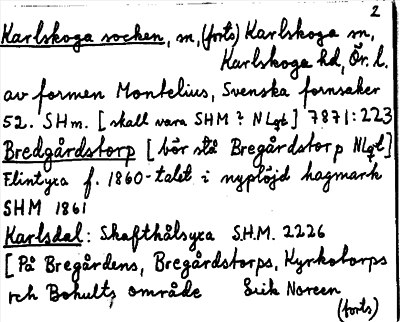 2
Karlskoga socken, m, (forts) Karlskoga m,
Karlskoga hd, Ör. l.
av formen Montelius, Svenska fornsaker
52. SHm. [skall vara SHM? NLgt] 7871:223
Bredgårdstorp [bör stå Bregårdstorp NLgt]
Flintyxa f. 1860-talet i nyplöjd hagmark
SHM 1861
Karlsdal: Skafthålsyxa S.H.M. 2226
[På Bregårdens, Bregårdstorps, Kyrkotorps
och Bohults område Erik Noreen
(forts)